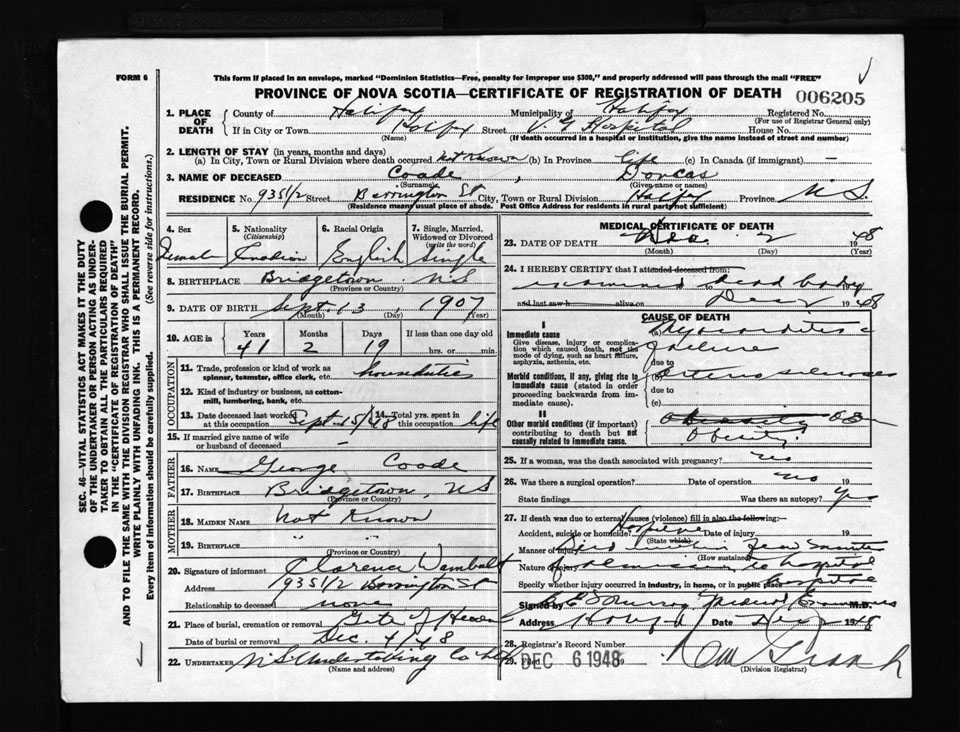 FORM 6
This form if placed in an envelope, marked "Dominion Statistics—Free, penalty for improper use $300," and properly addressed will pass through the mail "FREE"
PROVINCE OF NOVA SCOTIA—CERTIFICATE OF REGISTRATION OF DEATH 006205
1. PLACE OF DEATH
County of Halifax Municipality of Halifax Registered No.
(For use of Registrar General only)
If in City or Town Halifax Street V G Hospital House No.
(Name) (If death occurred in a hospital or institution, give its name instead of street and number)
2. LENGTH OF STAY (in years, months and days)
(a) In City, Town or Rural Division where death occurred not Known (b) In Province Life (c) In Canada (if immigrant) —
3. NAME OF DECEASED Coade , Dorcas
(Surname) (Given name or names)
RESIDENCE No. 935 1/2 Street Barrington St City, Town or Rural Division Halifax Province N.S.
(Residence means usual place of abode. Post Office Address for residents in rural parts not sufficient)
4. Sex
Female
5. Nationality
(Citizenship)
Canadian
6. Racial Origin
English
7. Single, Married, Widowed or Divorced
(write the word)
Single
8. BIRTHPLACE Bridgetown N.S
(Province or Country)
9. DATE OF BIRTH Sept. 13, 1907
(Month) (Day) (Year)
10. AGE in
Years Months Days If less than one day old
41 2 19 hrs. or min.
OCCUPATION
11. Trade, profession or kind of work as spinner, teamster, office clerk, etc. houseduties
12. Kind of industry or business, as cotton-mill, lumbering, bank, etc.
13. Date deceased last worked at this occupation Sept 15/48 14. Total yrs. spent in this occupation life
15. If married give name of wife or husband of deceased –
FATHER
16. NAME George Coade
17. BIRTHPLACE Bridgetown, NS
(Province or Country)
MOTHER
18. MAIDEN NAME Not Known
19. BIRTHPLACE " "
(Province or Country)
20. Signature of informant Clarence Wambolt
Address 1935 1/2 Barrington St
Relationship to deceased none
21. Place of burial, cremation or removal Gate of Heaven
Date of burial or removal Dec. 4/48
22. UNDERTAKER N.S. Undertaking Co Ltd
(Name and address)
MEDICAL CERTIFICATE OF DEATH
23. DATE OF DEATH Dec. 2 1948
(Month) (Day) (Year)
24. I HEREBY CERTIFY that I attended deceased from:
examined dead body
and last saw h alive on Dec 2 1948
CAUSE OF DEATH
I
Immediate cause
Give disease, injury or complication which caused death, not the mode of dying, such as heart failure, asphyxia, asthenia, etc.
(a) Myocarditis c
failure
due to
Morbid conditions, if any, giving rise to immediate cause (stated in order proceeding backwards from immediate cause).
(b) Arterio sclerosis
due to
(c)
II
Other morbid conditions (if important) contributing to death but not causally related to immediate cause.
Obesity
25. If a woman, was the death associated with pregnancy? no
26. Was there a surgical operation? Date of operation no 19
State findings Was there an autopsy? yes
27. If death was due to external causes (violence) fill in also the following:
Accident, suicide or homicide? Date of injury 19
(State which)
Manner of injury Died within few minutes
(How sustained)
Nature of injury of admission to hospital
Specify whether injury occurred in industry, in home, or in public place hospital
Signed by Murray Medical Examiner M.D.
Address Halifax Date Dec 2 1948
28. Registrar's Record Number
29. Filed DEC 6 1948 19
(Division Registrar)
SEC. 46—VITAL STATISTICS ACT MAKES IT THE DUTY
OF THE UNDERTAKER OR PERSON ACTING AS UNDER-
TAKER TO OBTAIN ALL THE PARTICULARS REQUIRED
IN THE "CERTIFICATE OF REGISTRATION OF DEATH"
AND TO FILE THE SAME WITH THE DIVISION REGISTRAR WHO SHALL ISSUE THE BURIAL PERMIT.
WRITE PLAINLY WITH UNFADING INK. THIS IS A PERMANENT RECORD.
Every item of information should be carefully supplied. (See reverse side for instructions.)